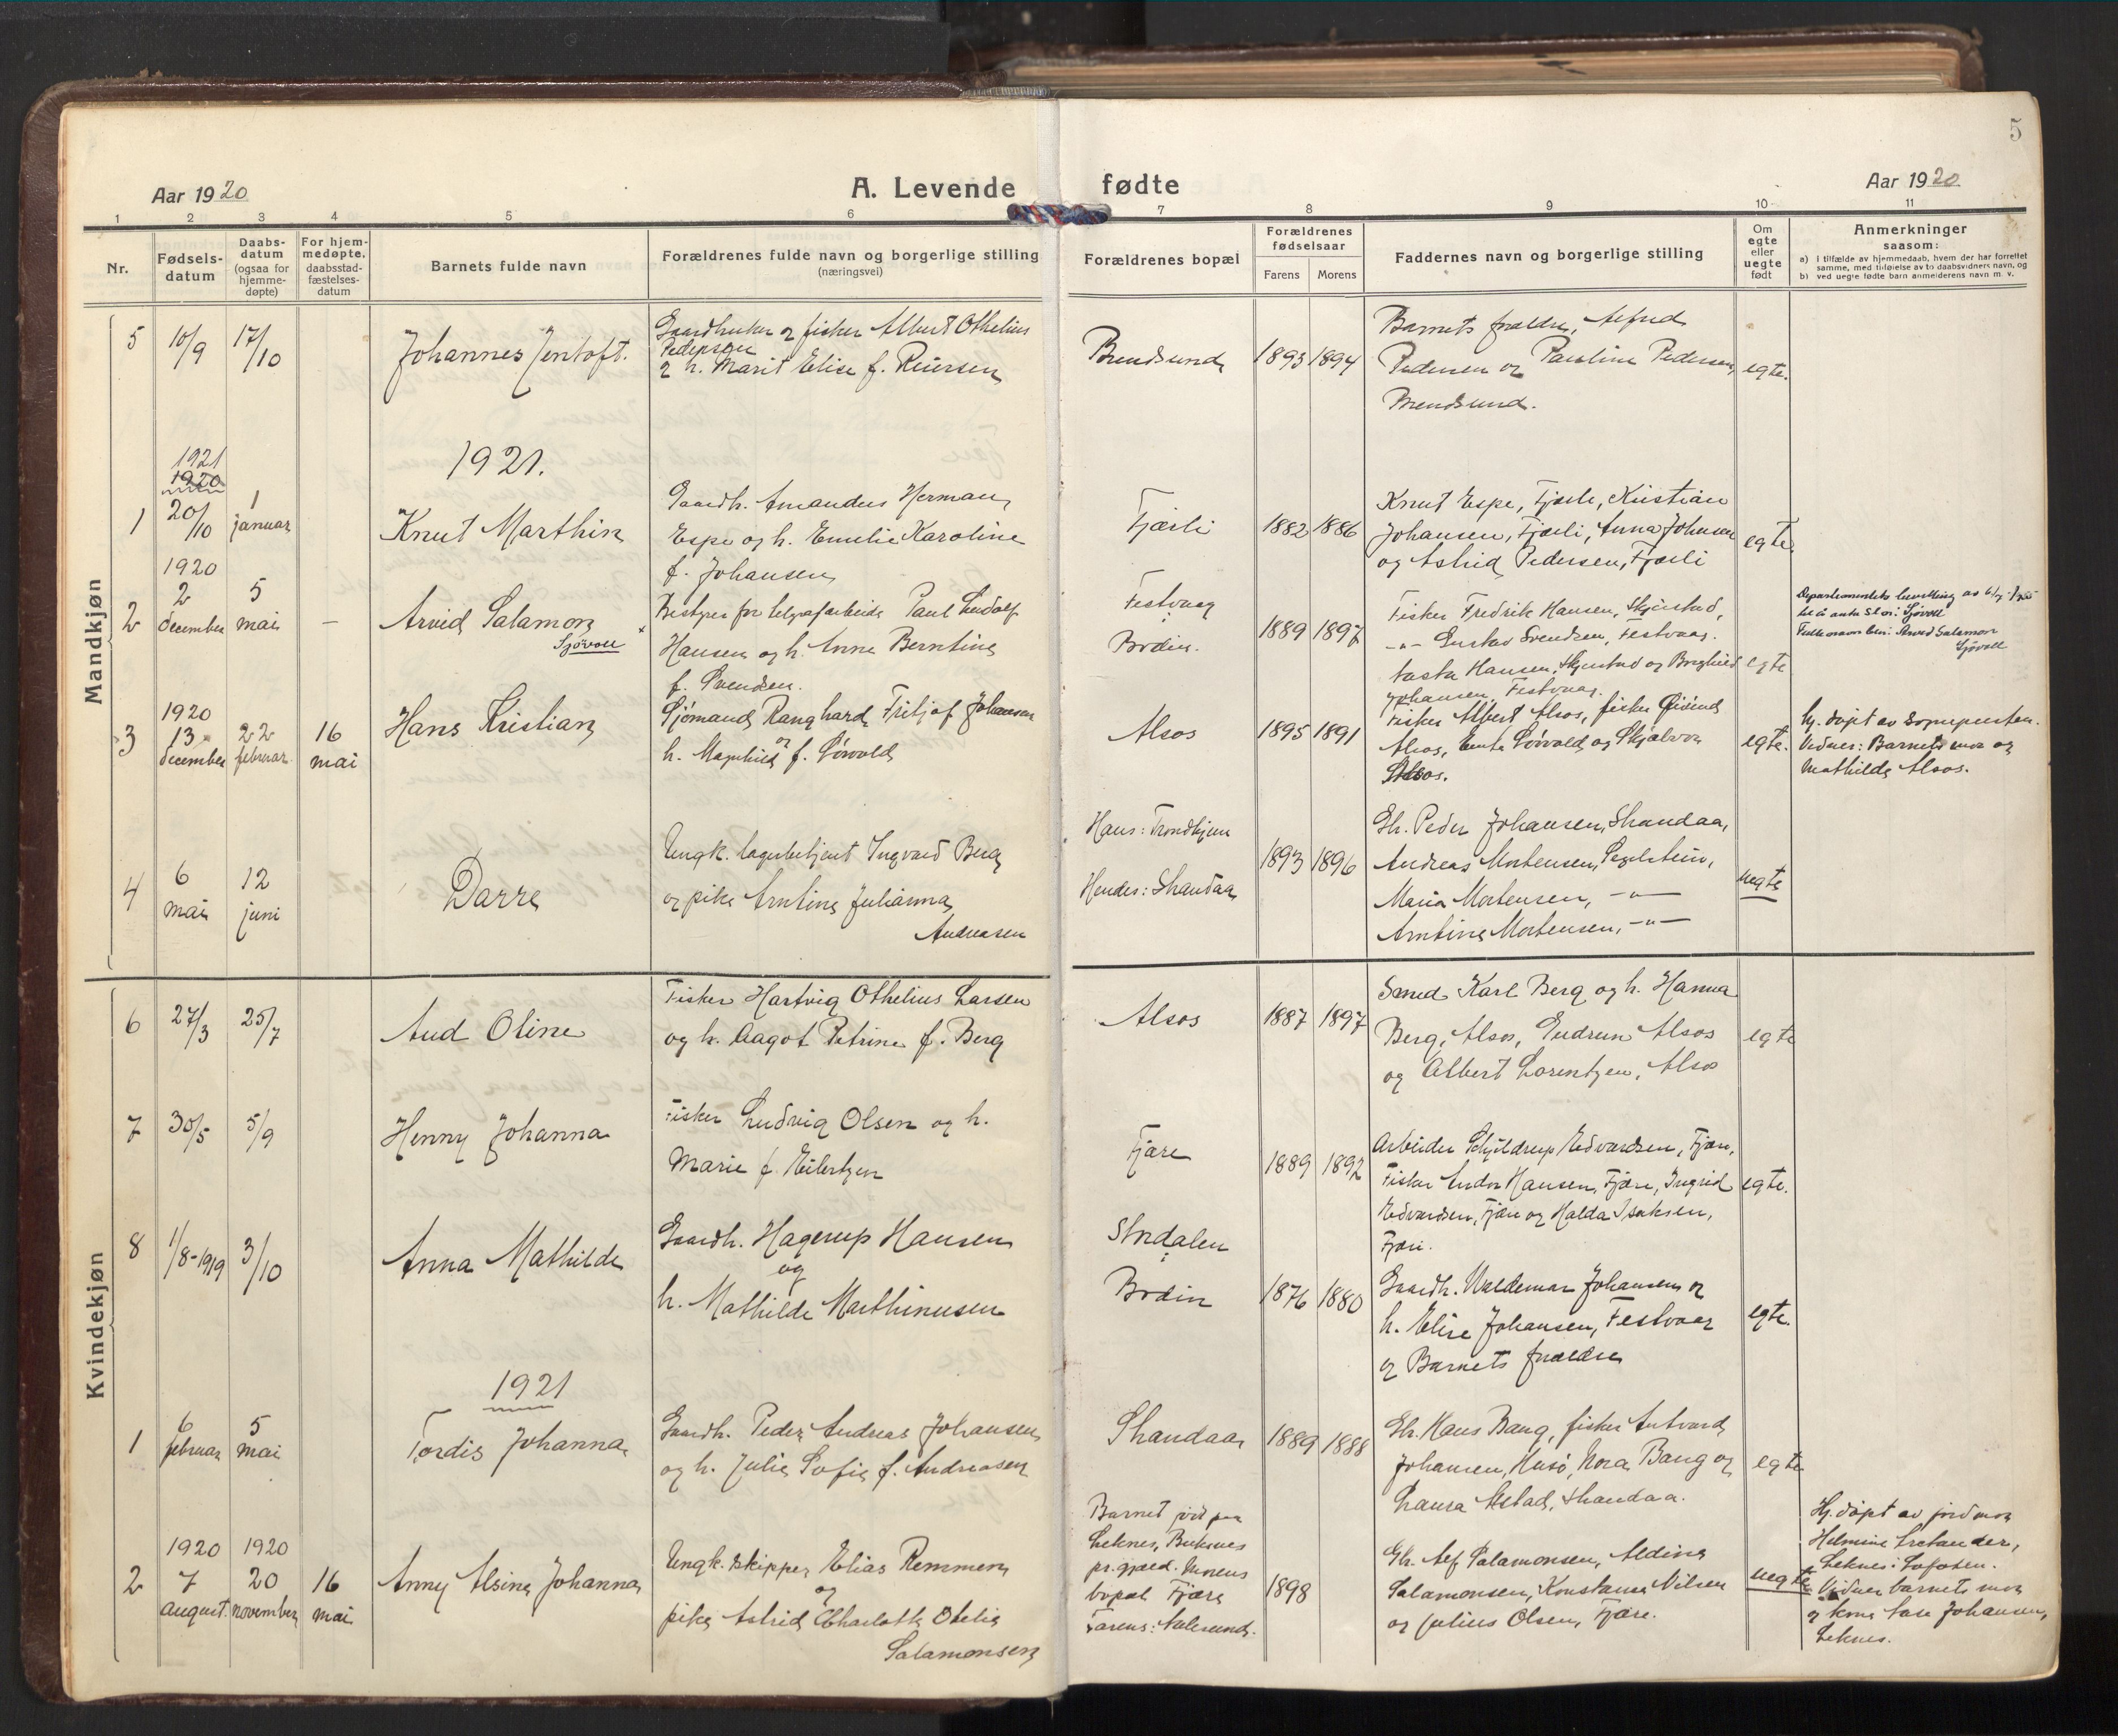 5
Aar 1920
A. Levende fødte
Aar 1920
1 2 3 4 5 6 7 8 9 10 11
Nr.
Fødsels-
datum
Daabs-
datum
(ogsaa for
hjemme-
døpte)
For hjem-
medøpte,
daabsstad-
fæstelses-
datum
Barnets fulde navn
Forældrenes fulde navn og borgerlige stilling
(næringsvei)
Forældrenes bopæl
Forældrenes
fødselsaar
Farens Morens
Faddernes navn og borgerlige stilling
Om
egte
eller
uegte
født
Anmerkninger
saasom:
a) i tilfælde av hjemmedaab, hvem der har forrettet
samme, med tilføielse av to daabsvidners navn, og
b) ved uegte fødte barn anmelderens navn m. v.
Mandkjøn
5
10/9
17/10
Johannes Jentoft.
Gaardbruker og fisker Albert Othelius
Pedersen
og h. Marit Elise f. Reiersen
Brendsund
1893 1894
Barnets forældre, Alfred
Pedersen og Pauline Pedersen,
Brendsund.
egte.
1921.
1921
1920
1
20/10
1
januar
Knut Marthin
Gaardh. Amandus Herman
Espe og h. Emelie Karoline
f. Johansen
Fjærli
1882 1886
Knut Espe, Fjærli, Kristian
Johansen, Fjærli, Anna Johnsen
og Astrid Pedersen, Fjærli
egte.
1920
2
2
december
5
mai
—
Arvid Salamon
Sjøvoll
Bestyrer for telegrafarbeide Paul Ludolf
Hansen og h. Anna Berntine
f. Svendsen.
Festvaag
Bodin.
1889 1897
Fisker Fredrik Hansen, Skjerstad,
-"- Gustav Svendsen, Festvaag.
Hansen, Skjerstad og Borghild
Johansen, Festvaag.
egte
Departementets bevilling av
til å anta sl.n: Sjøvoll
Fulle navn blir: Arvid Salamon
Sjøvoll
1920
3
13
december
22
februar
16
mai
Hans Kristian
Sjømand Ranghard Fritjof Johansen
og
h. Magnhild f. Sørvold
Alsos
1895 1891
Fisker Albert Alsos, fisker Øivind
Alsos, Sørvold og Skjalvor
Alsos.
egte.
hj. døpt av sognepresten.
Vidner: Barnets mor og
Mathilde Alsos.
4
6
mai
12
juni
Darre
Ungk. lagerbetjent Ingvard Berg
og pike Arntine Julianna
Andreasen
Hans: Trondhjem
Hendes: Skandaa
1893 1896
Gh. Peder Johansen, Skandaa,
Andreas Mortensen, Segelstein,
Maria Mortensen, -"-
Arntine Mortensen, -"-
uegte
Kvindekjøn
6
27/3
25/7
Aud Oline
Fisker Hartvig Othelius Larsen
og h. Aagot Petrine f. Berg
Alsos
1887 1897
Smed Karl Berg og h. Hanna
Berg, Alsos, Gudrun Alsos
og Albert Lorentzen, Alsos
egte
7
30/5
5/9
Henny Johanna
Fisker Ludvig Olsen og h.
Marie f. Eilertzen
Fjære
1889 1892
Arbeider Schjeldrup Edvardsen, Fjære,
Fisker Andor Hansen, Fjære, Ingrid
Edvardsen, Fjære og Halda Isaksen,
Fjære.
egte.
8
1/8-1919
3/10
Anna Mathilde
Gaardh. Hagerup Hansen
og
h. Mathilde Marthinusen
Stordalen
Bodin
1876 1880
Gaardh. Waldemar Johansen og
h. Elise Johansen, Festvaag
og Barnets forældre
egte.
1921
1
6
februar
5
mai
Tordis Johanna
Gaardh. Peder Andreas Johansen
og h. Julie Sofie f. Andreasen
Skandaa
1889 1888
Gh. Hans Bang, fisker Antvard
Johansen, Husø, Nora Bang og
Laura Alstad, Skandaa.
egte
1920 1920
2
7
august.
20
november
16
mai
Anny Alsine Johanna
Ungk. skipper Elias Remmen
og
pike Astrid Charlotte Otelie
Salamonsen
Barnet født paa
Leknes, Buksnes
pr.gjæld. Morens
bopæl Fjære
Farens: Aalesund.
1898
Gh. Alf Salamonsen, Aldine
Salamonsen, Konstanse Nilsen
og Julius Olsen, Fjære.
uegte
Hj. døpt av jordmor
Helmine
Leknes i Lofoten.
Vidner barnets mor
og kone Johansen,
Leknes.